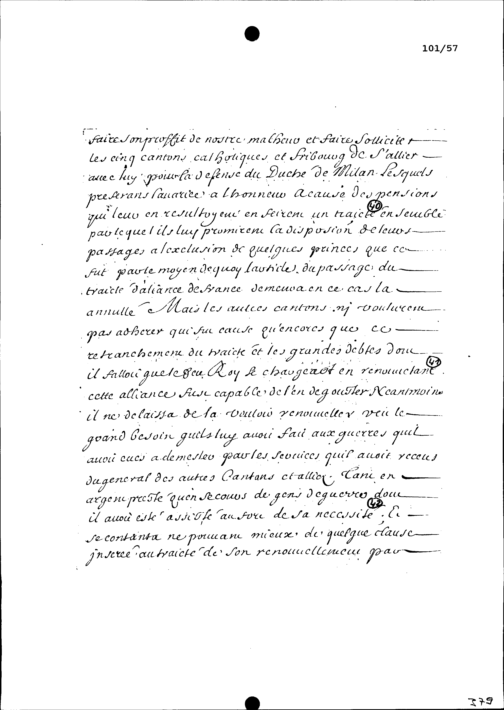 101/57
faire son proffit de nostre malheur et faire solliciter
les cinq cantons catholiques et fribourg de s'allier
avec luy pour la defense du Duché de Milan. Lesquels
preferans l'avarice a l'honneur a cause des pensions
qui leur en resultoyent en firent un traicté ensemble (40)
par lequel ils luy promirent la disposition de leurs
passages a l'exclusion de quelques princes que ce
fut par le moyen de quoy l'article du passage du
traicté d'aliance de france demeura en ce cas la
annullé Mais les autres cantons nj voulurent
pas adherer qui fut cause qu'encores que ce
retranchement du traicté et les grandes debtes dont
il falloit que le feu Roy se chargeast en renouvelant (41)
cette alliance fust capable de l'en degouster Neantmoins
il ne delaissa de la vouloir renouveller veu le
grand besoin quels luy avoit fait aux guerres quil
avoit eues a demesler par les services quil avoit receus
du general des autres Cantons et alliez, Tant en
argent presté qu'en secours de gens de guerre, dont
il avoit esté assisté au fort de sa necessité, Et (42)
se contanta ne pouvant mieux de quelque clause
jnserée au traicté de son renouvellement par
379